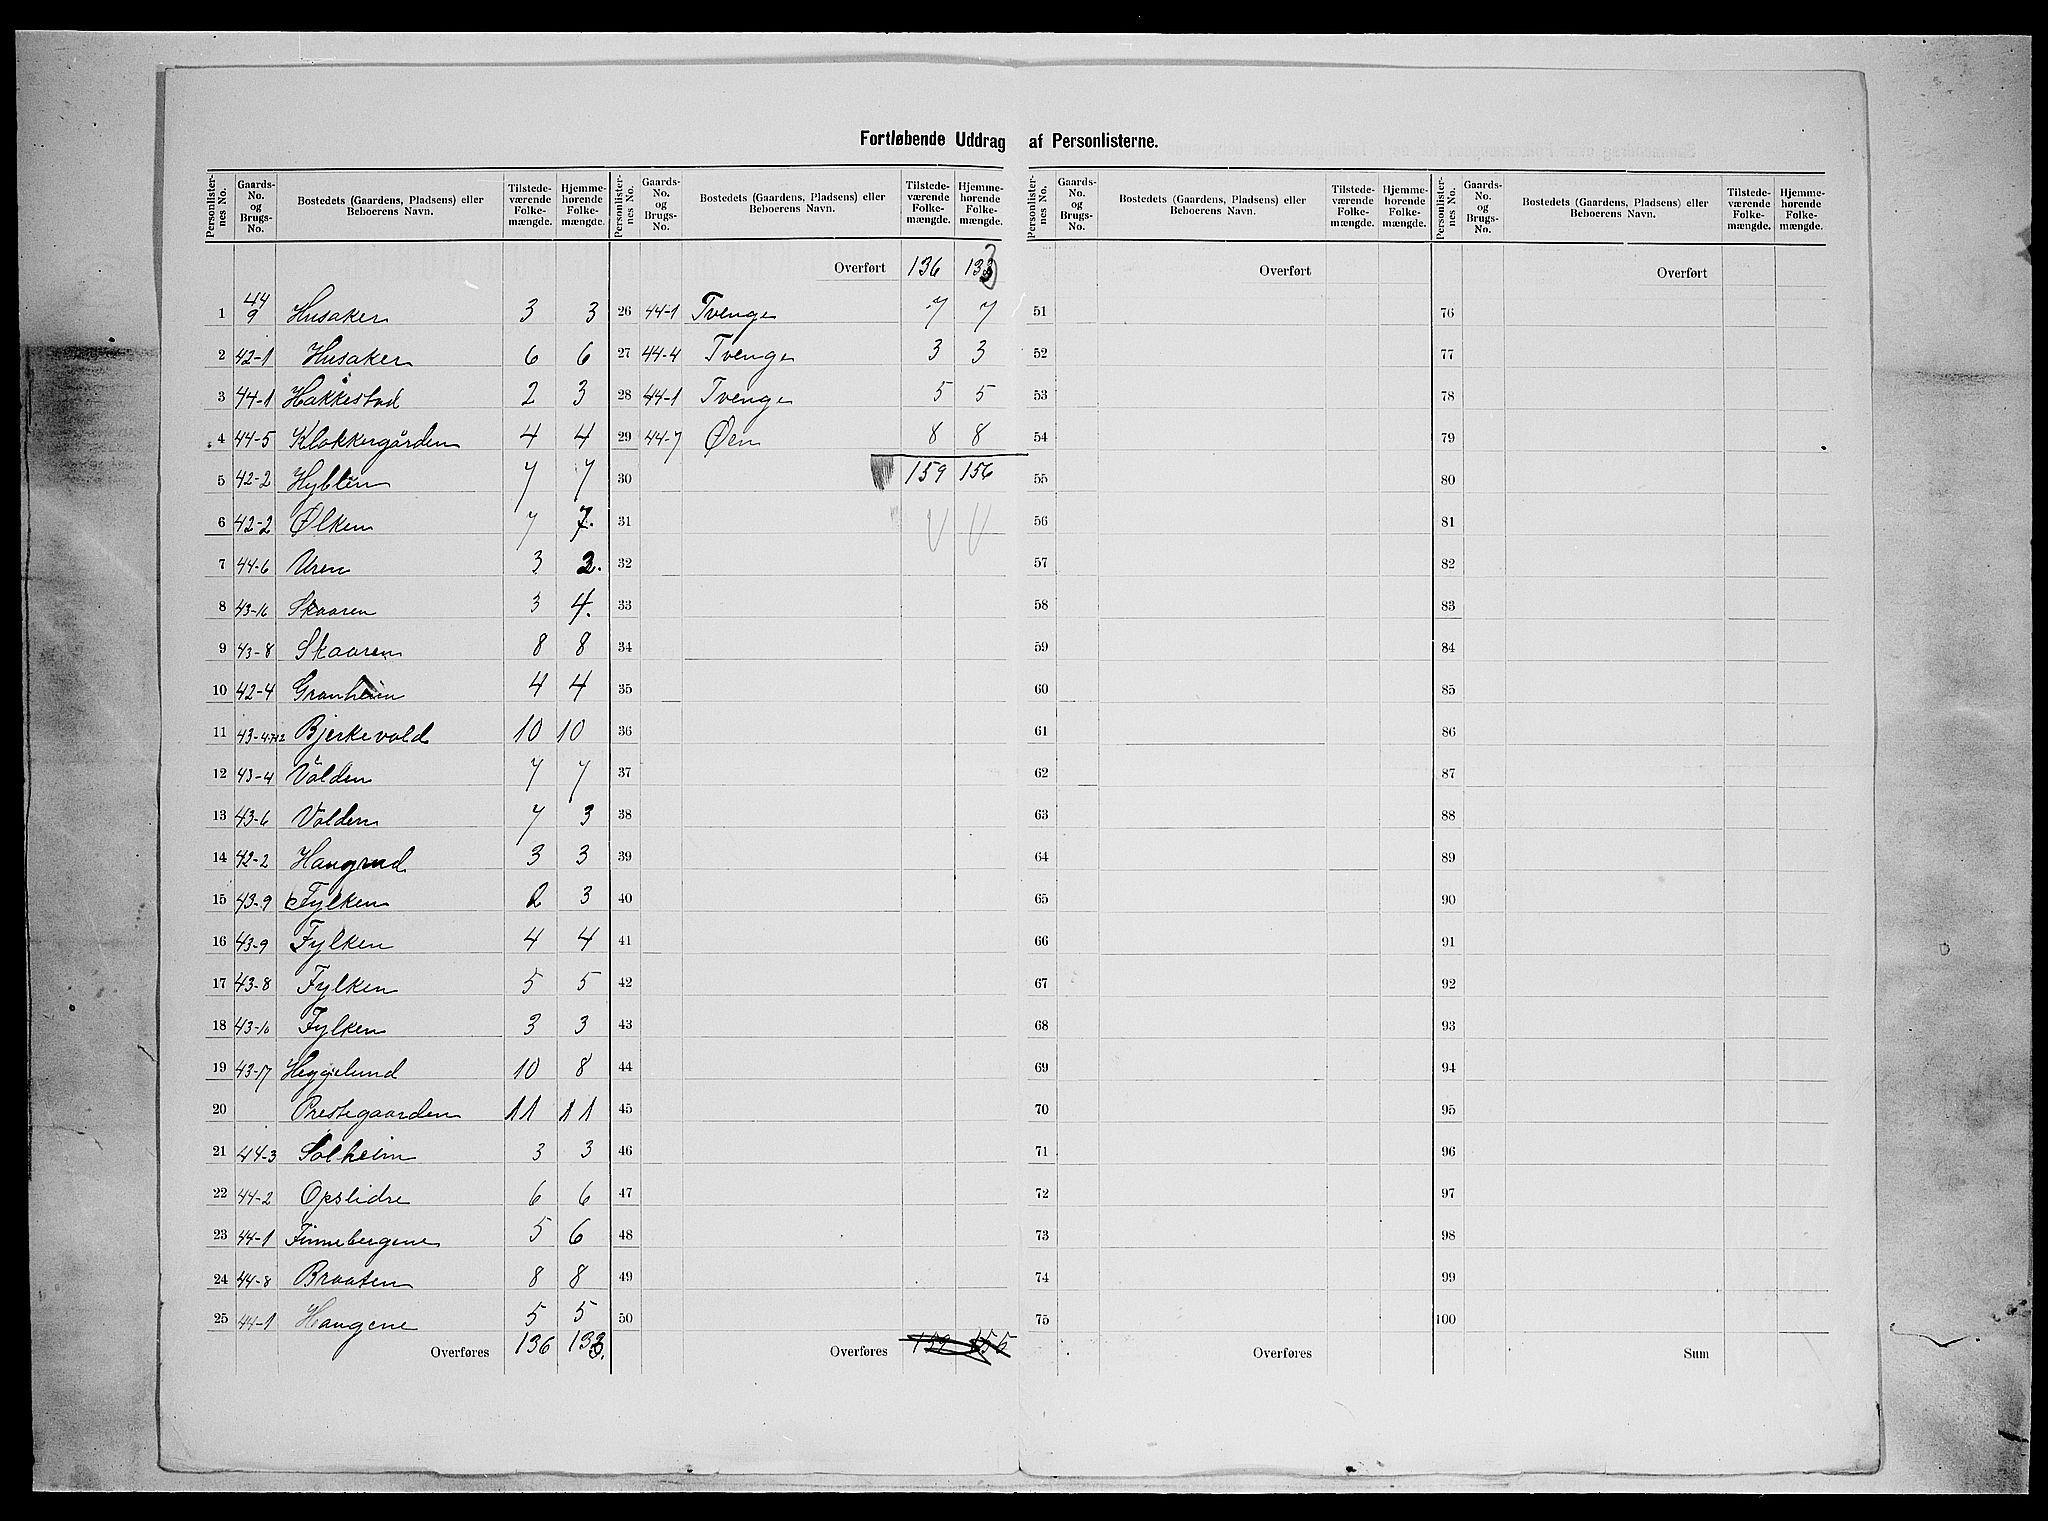 Fortløbende Uddrag af Personlisterne.
Personlisternes No. | Gaards-No. og Brugs-No. | Bostedets (Gaardens, Pladsens) eller Beboerens Navn. | Tilstedeværende Folkemængde. | Hjemmehørende Folkemængde.
1 44 9 Husaker 3 3
2 42-1 Husaker 6 6
3 44-1 Håkkestad 2 3
4 44-5 Klokkergården 4 4
5 42-2 Hyblin 7 7
6 42-2 Ølken 7 7.
7 44-6 Uren 3 2.
8 43-16 Skaaren 3 4.
9 43-8 Skaaren 8 8
10 42-4 Granheim 4 4
11 43-4.7+2 Bjerkevold 10 10
12 43-4 Volden 7 7
13 43-6 Volden 7 3
14 42-2 Haugrud 3 3
15 43-9 Fylken 2 3
16 43-9 Fylken 4 4
17 43-8 Fylken 5 5
18 43-10 Fylken 3 3
19 43-17 Heggelund 10 8
20 Prestegaarden 11 11
21 44-3 Solheim 3 3
22 44-2 Opslidre 6 6
23 44-1 Finnebergene 5 6
24 44-8 Braaten 8 8
25 44-1 Haugene 5 5
Overføres 136 133.
Personlisternes No. | Gaards-No. og Brugs-No. | Bostedets (Gaardens, Pladsens) eller Beboerens Navn. | Tilstedeværende Folkemængde. | Hjemmehørende Folkemængde.
Overført 136 133
26 44-1 Tvenge 7 7
27 44-4 Tvenge 3 3
28 44-1 Tvenge 5 5
29 44-7 Øen 8 8
30 159 156
31
32
33
34
35
36
37
38
39
40
41
42
43
44
45
46
47
48
49
50
Overføres 159 155
Personlisternes No. | Gaards-No. og Brugs-No. | Bostedets (Gaardens, Pladsens) eller Beboerens Navn. | Tilstedeværende Folkemængde. | Hjemmehørende Folkemængde.
Overført
51
52
53
54
55
56
57
58
59
60
61
62
63
64
65
66
67
68
69
70
71
72
73
74
75
Overføres
Personlisternes No. | Gaards-No. og Brugs-No. | Bostedets (Gaardens, Pladsens) eller Beboerens Navn. | Tilstedeværende Folkemængde. | Hjemmehørende Folkemængde.
Overført
76
77
78
79
80
81
82
83
84
85
86
87
88
89
90
91
92
93
94
95
96
97
98
99
100
Sum